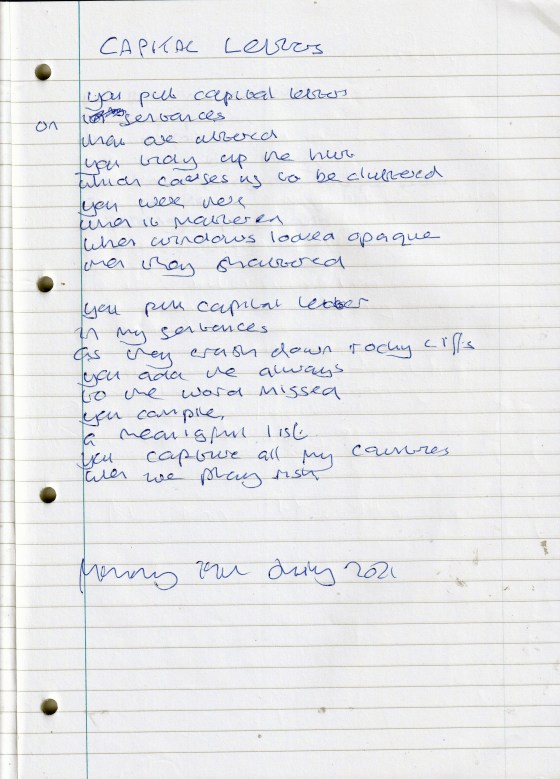 CAPITAL Letters
you put capital letters
on sentences
that are altered
you tidy up the hurt
which causes us to be cluttered
you were there
when it mattered
when windows looked opaque
and they shattered
you put capital letter
in my sentences
as they crash down rocky cliffs
you add the always
to the word missed
you compile,
a meaningful list
you capture all my countries
when we play risk
July 2021